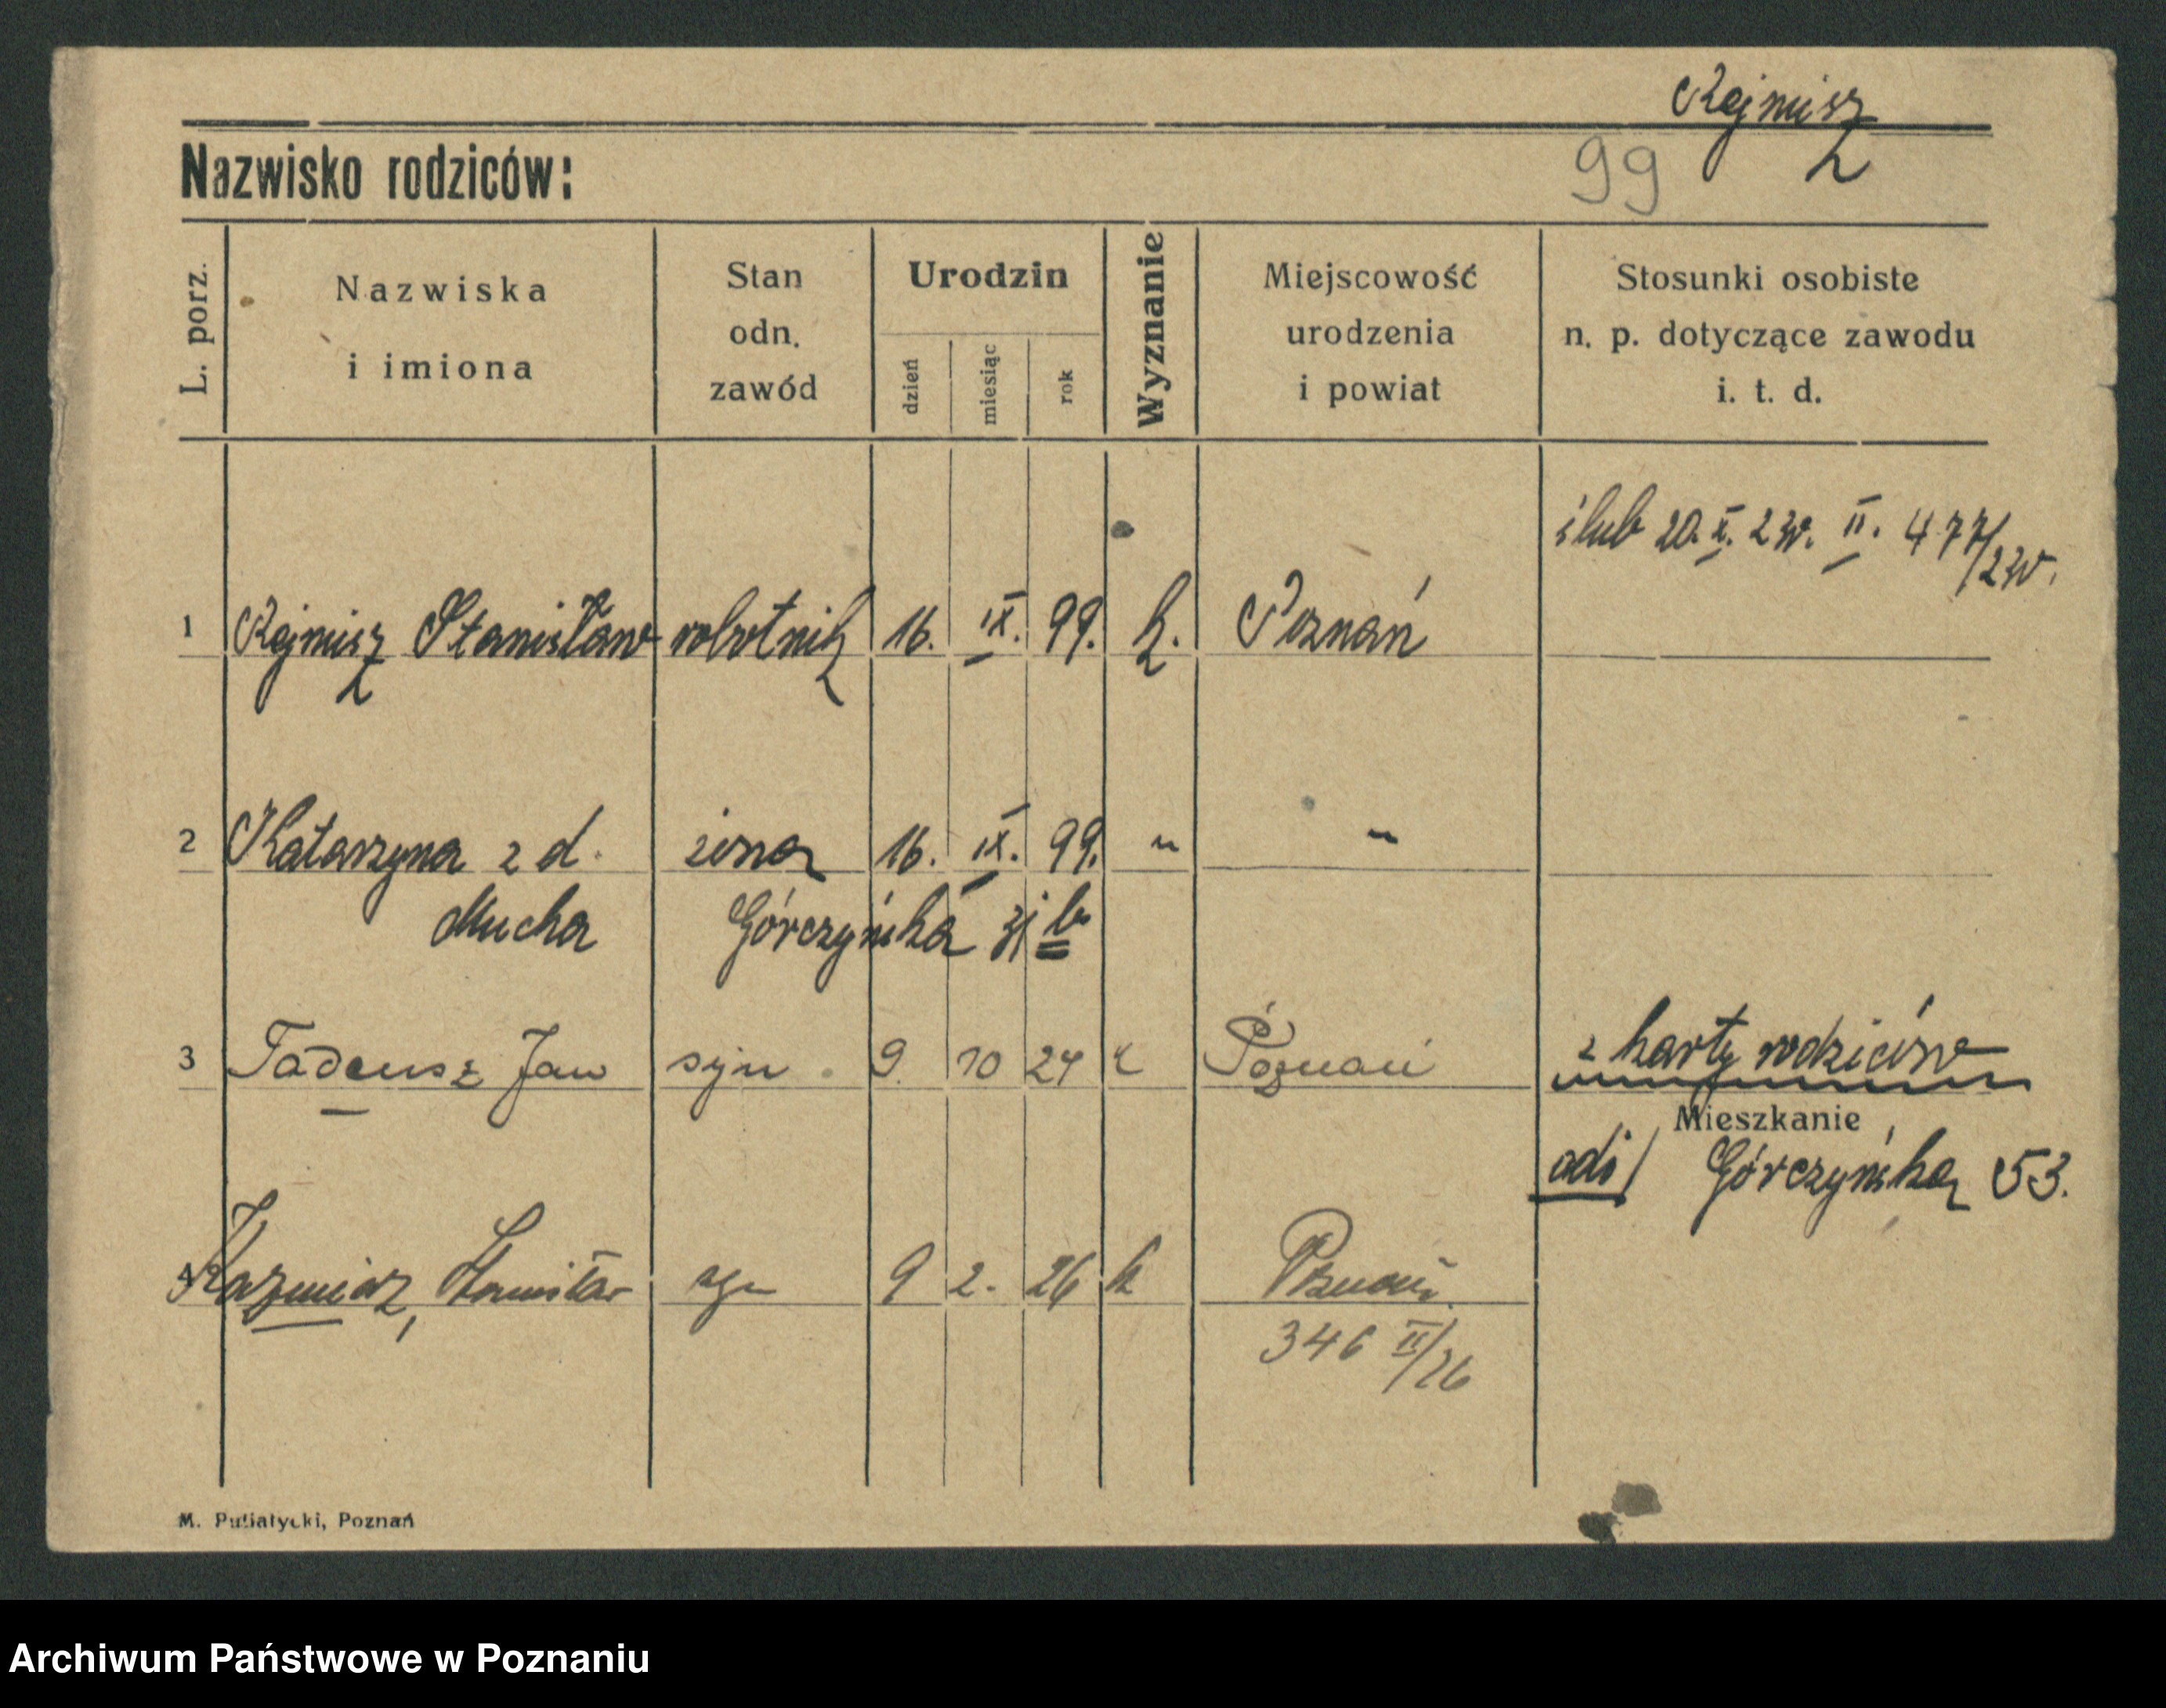 Rejmisz
Nazwisko rodziców:
99
L. porz.
Nazwiska i imiona
Stan odn. zawód
Urodzin
dzień
miesiąc
rok
Wyznanie
Miejscowość urodzenia i powiat
Stosunki osobiste n. p. dotyczące zawodu i. t. d.
ślub 20. X. 23r. II. 477/23r.
1 Rejmisz Stanisław robotnik 16. IX. 99. k. Poznań
2 Katarzyna z d. żona 16. IX. 99. " "
Mucha Górczyńska 31 b
3 Tadeusz Jan syn 9. 10 24 k Poznań z karty rodziców
Mieszkanie
Górczyńska 53.
4 Kazmierz, Stanisław syn 9 2. 26 k Poznań
346 II/26
M. Putiatycki, Poznań
Archiwum Państwowe w Poznaniu